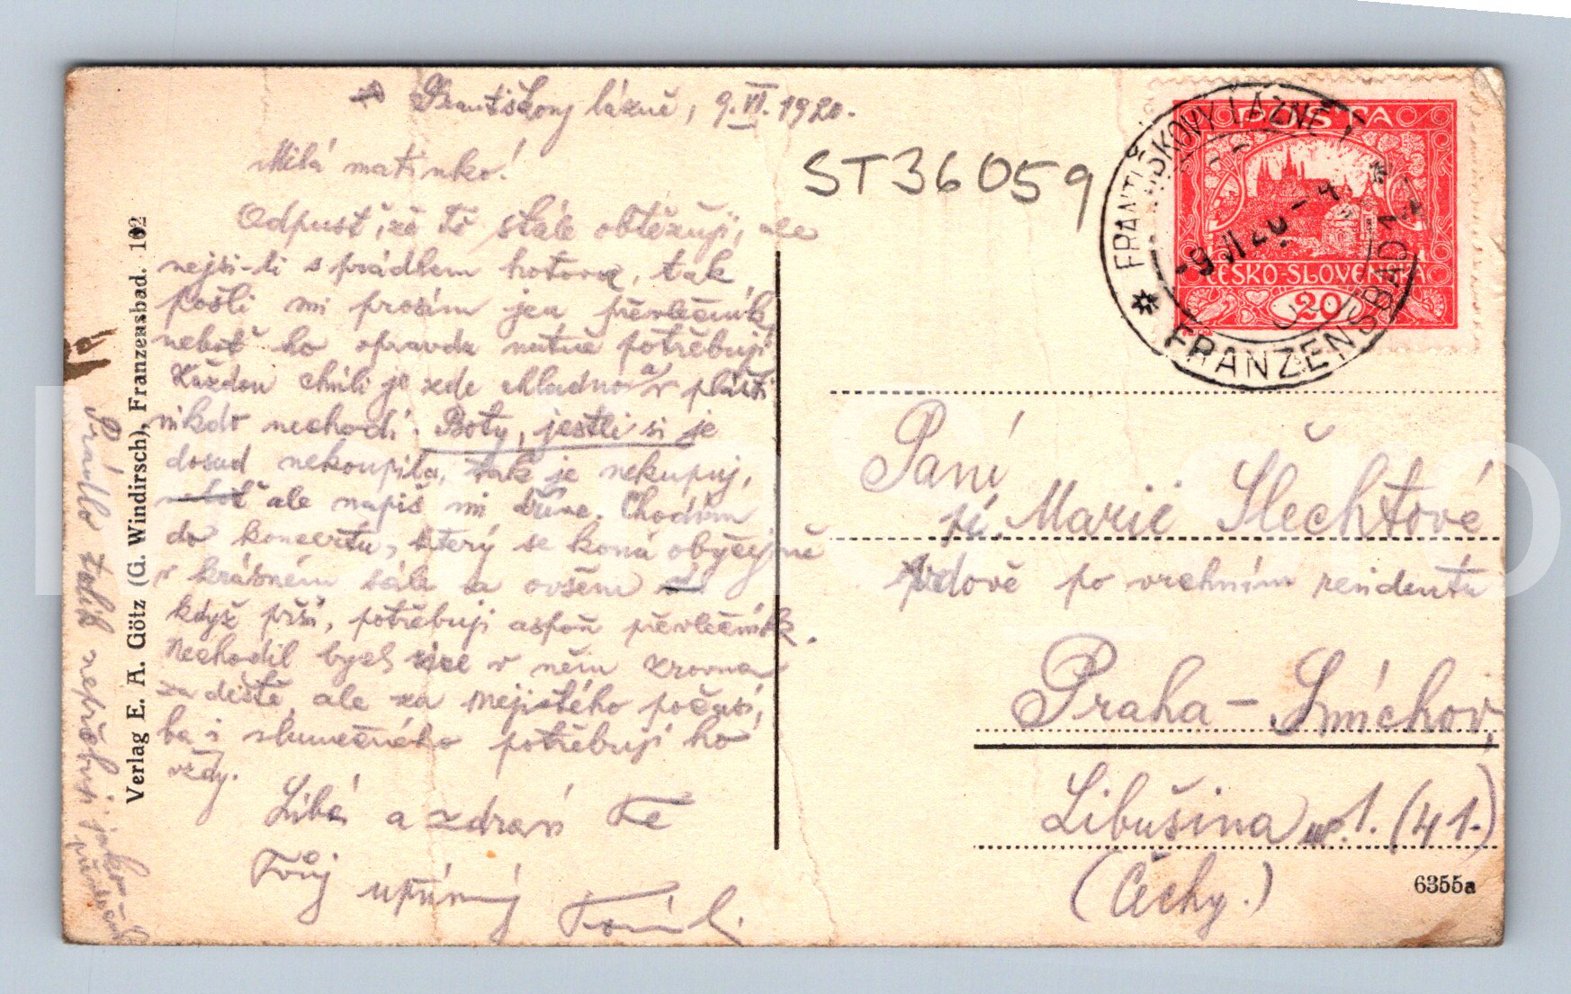 Františkovy lázně, 9.VI.1920.
Milá matinko!
Odpusť, že Tě stále obtěžuji, ale
nejsi-li s prádlem hotova, tak
pošli mi prosím jen převlečník,
neboť ho opravdu nutně potřebuji.
Každou chvíli je zde chladno a v plášti
nikdo nechodí. Boty, jestli si je
dosud nekoupila, tak je nekupuj,
ale napiš mi dříve. Chodím
do koncertu, který se koná obyčejně
v krásném sále a ovšem
když prší, potřebuji aspoň převlečník.
Nechodil bych sice v něm zrovna
za deště, ale za nejistého počasí,
ba i slunečného potřebuji ho
vždy.
Líbá a zdraví Tě
Tvůj upřímný
Prádlo tolik nepotřebuji jako
převlečník
Verlag E. A. Götz (G. Windirsch), Franzensbad. 102
ST36059
POŠTA
ČESKO-SLOVENSKÁ
20
FRANTIŠKOVY LÁZNĚ 1
-9.VI.20-4
FRANZENSBAD 1
Paní
pí. Marii Šlechtové
vdově po vrchním
Praha-Smíchov,
Libušina ul. 1. (41.)
(Čechy.)
6355a